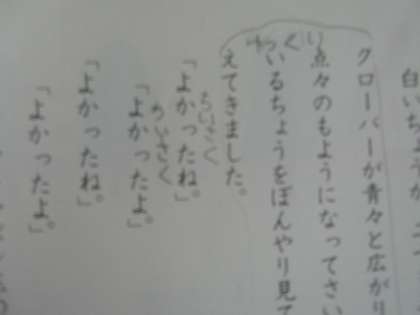 白いちょうが、
クローバーが青々と広がり
点々のもようになってさい
ゆっくり
いるちょうをぼんやり見て
えてきました。
ちいさく
「よかったね。」
ちいさく
「よかったよ。」
「よかったね。」
「よかったよ。」